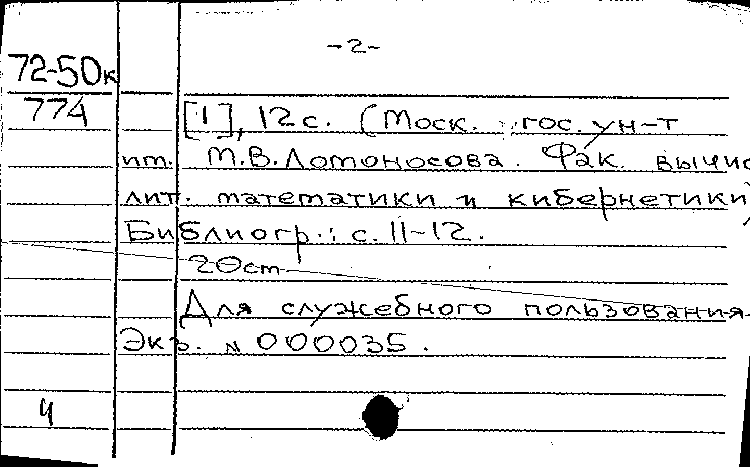 -2-
72-50к
774
[1], 12 с. (Моск. гос. ун-т
им. М.В.Ломоносова. Фак. вычис
лит. математики и кибернетики)
Библиогр.: с. 11-12.
20см
Для служебного пользования.
Экз. N 000035.
4